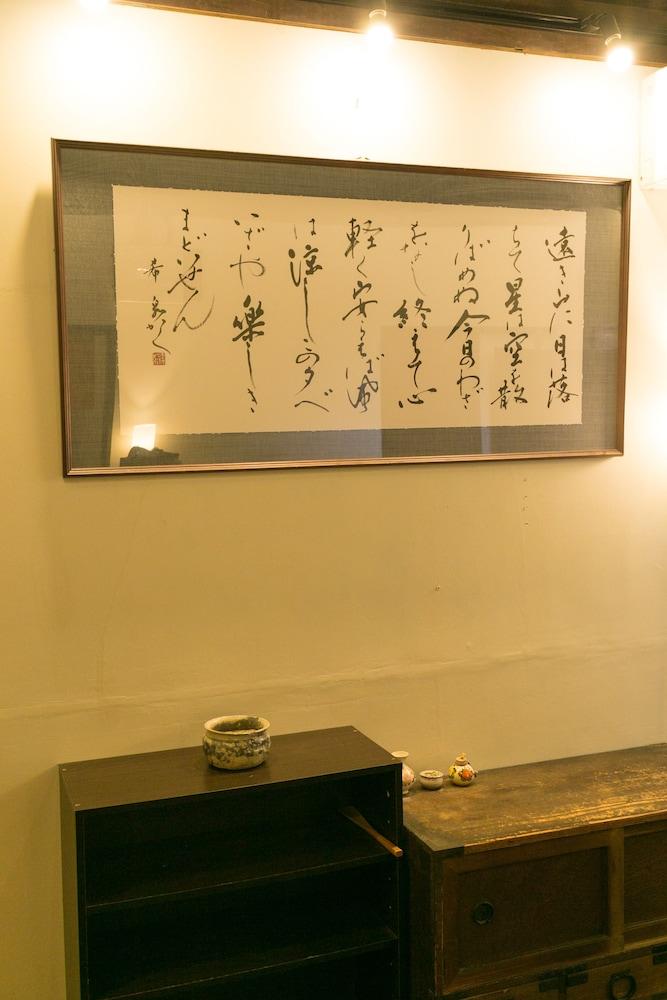 遠き山に日は落
ちて星は空を散
りばめぬ今日のわざ
をなし終えて心
軽く安らえば風
は涼しこの夕べ
いざや楽しき
まどいせん